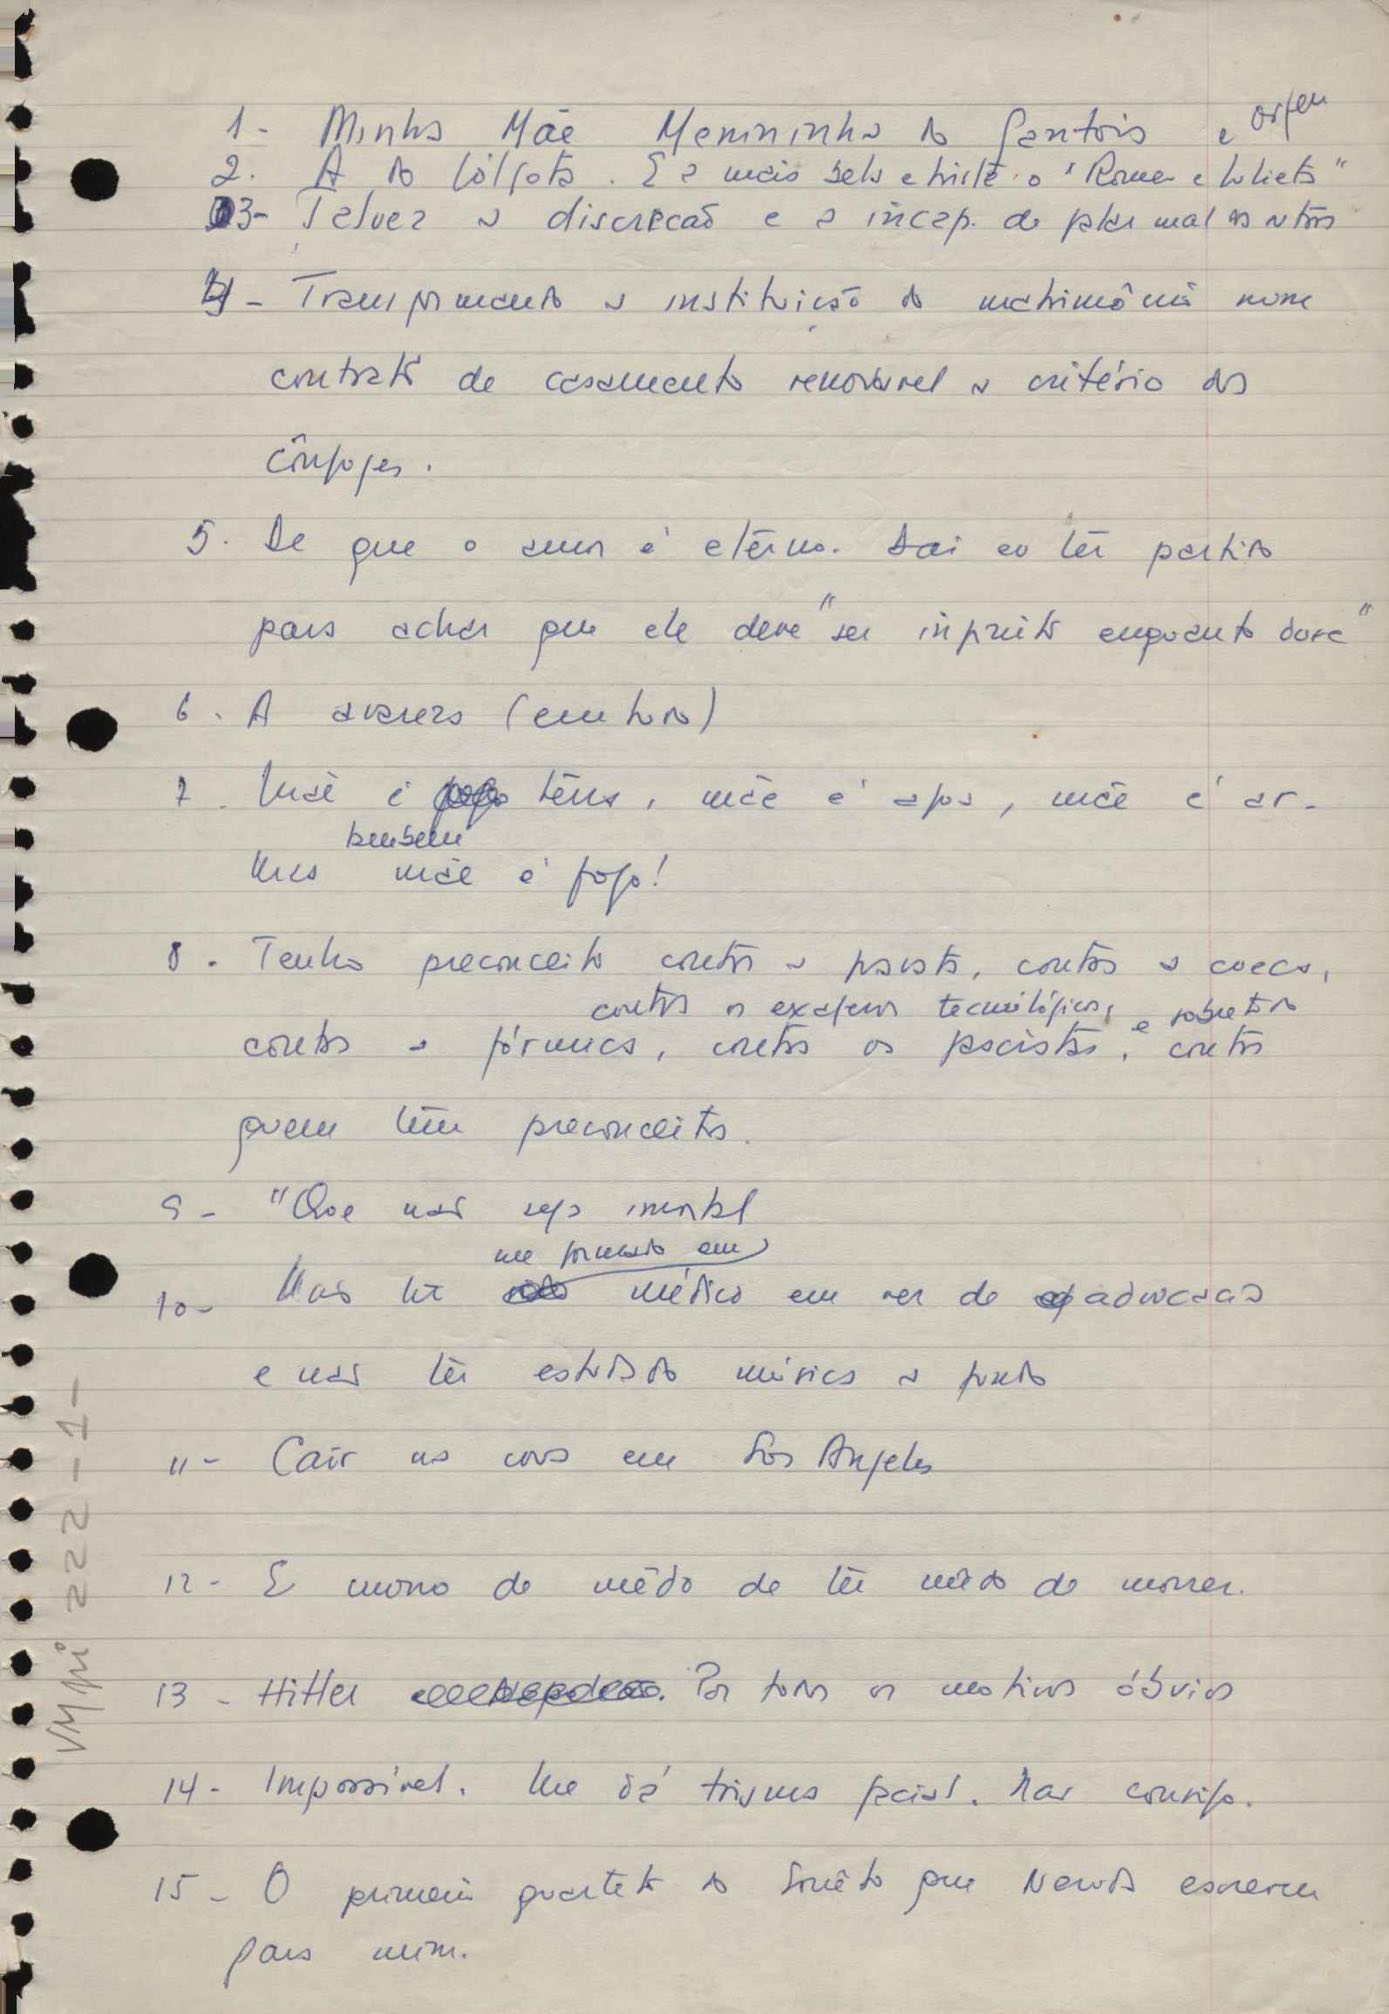 1- Minha Mãe Menininha do Gantois e Orfeu
2. A do Gólgota. E a mais bela e triste: o "Romeu e Julieta"
3- Talvez a discreção e a incap. de falar mal dos outros
4- Transformando a instituição do matrimônio num
contrato de casamento renovável a critério dos
cônjuges.
5. De que o amor é etêrno. Daí eu têr partido
para achar que ele deve "ser infinito enquanto dure"
6. A avareza (em tudo)
7. Mãe é têrra, mãe é agua, mãe é ar-
também
Mas mãe é fogo!
8. Tenho preconceito contra a , contra a cueca,
contra os exageros tecnológicos, e sobretudo
contra a fórmica, contra os racistas, contra
quem têm preconceitos.
9- "Que não seja imortal
me formado em
10- Não ter médico em vez de advocacia
e não têr estudado música a fundo
11- Cair na cova em Los Angeles
12- E morro de mêdo de têr mêdo de morrer.
13- Hitler Por todos os motivos óbvios
14- Impossível. Me dá trismo facial. Não consigo.
15- O primeiro quarteto do Sonêto que Neruda escreveu
para mim.
VMpi 222-1-